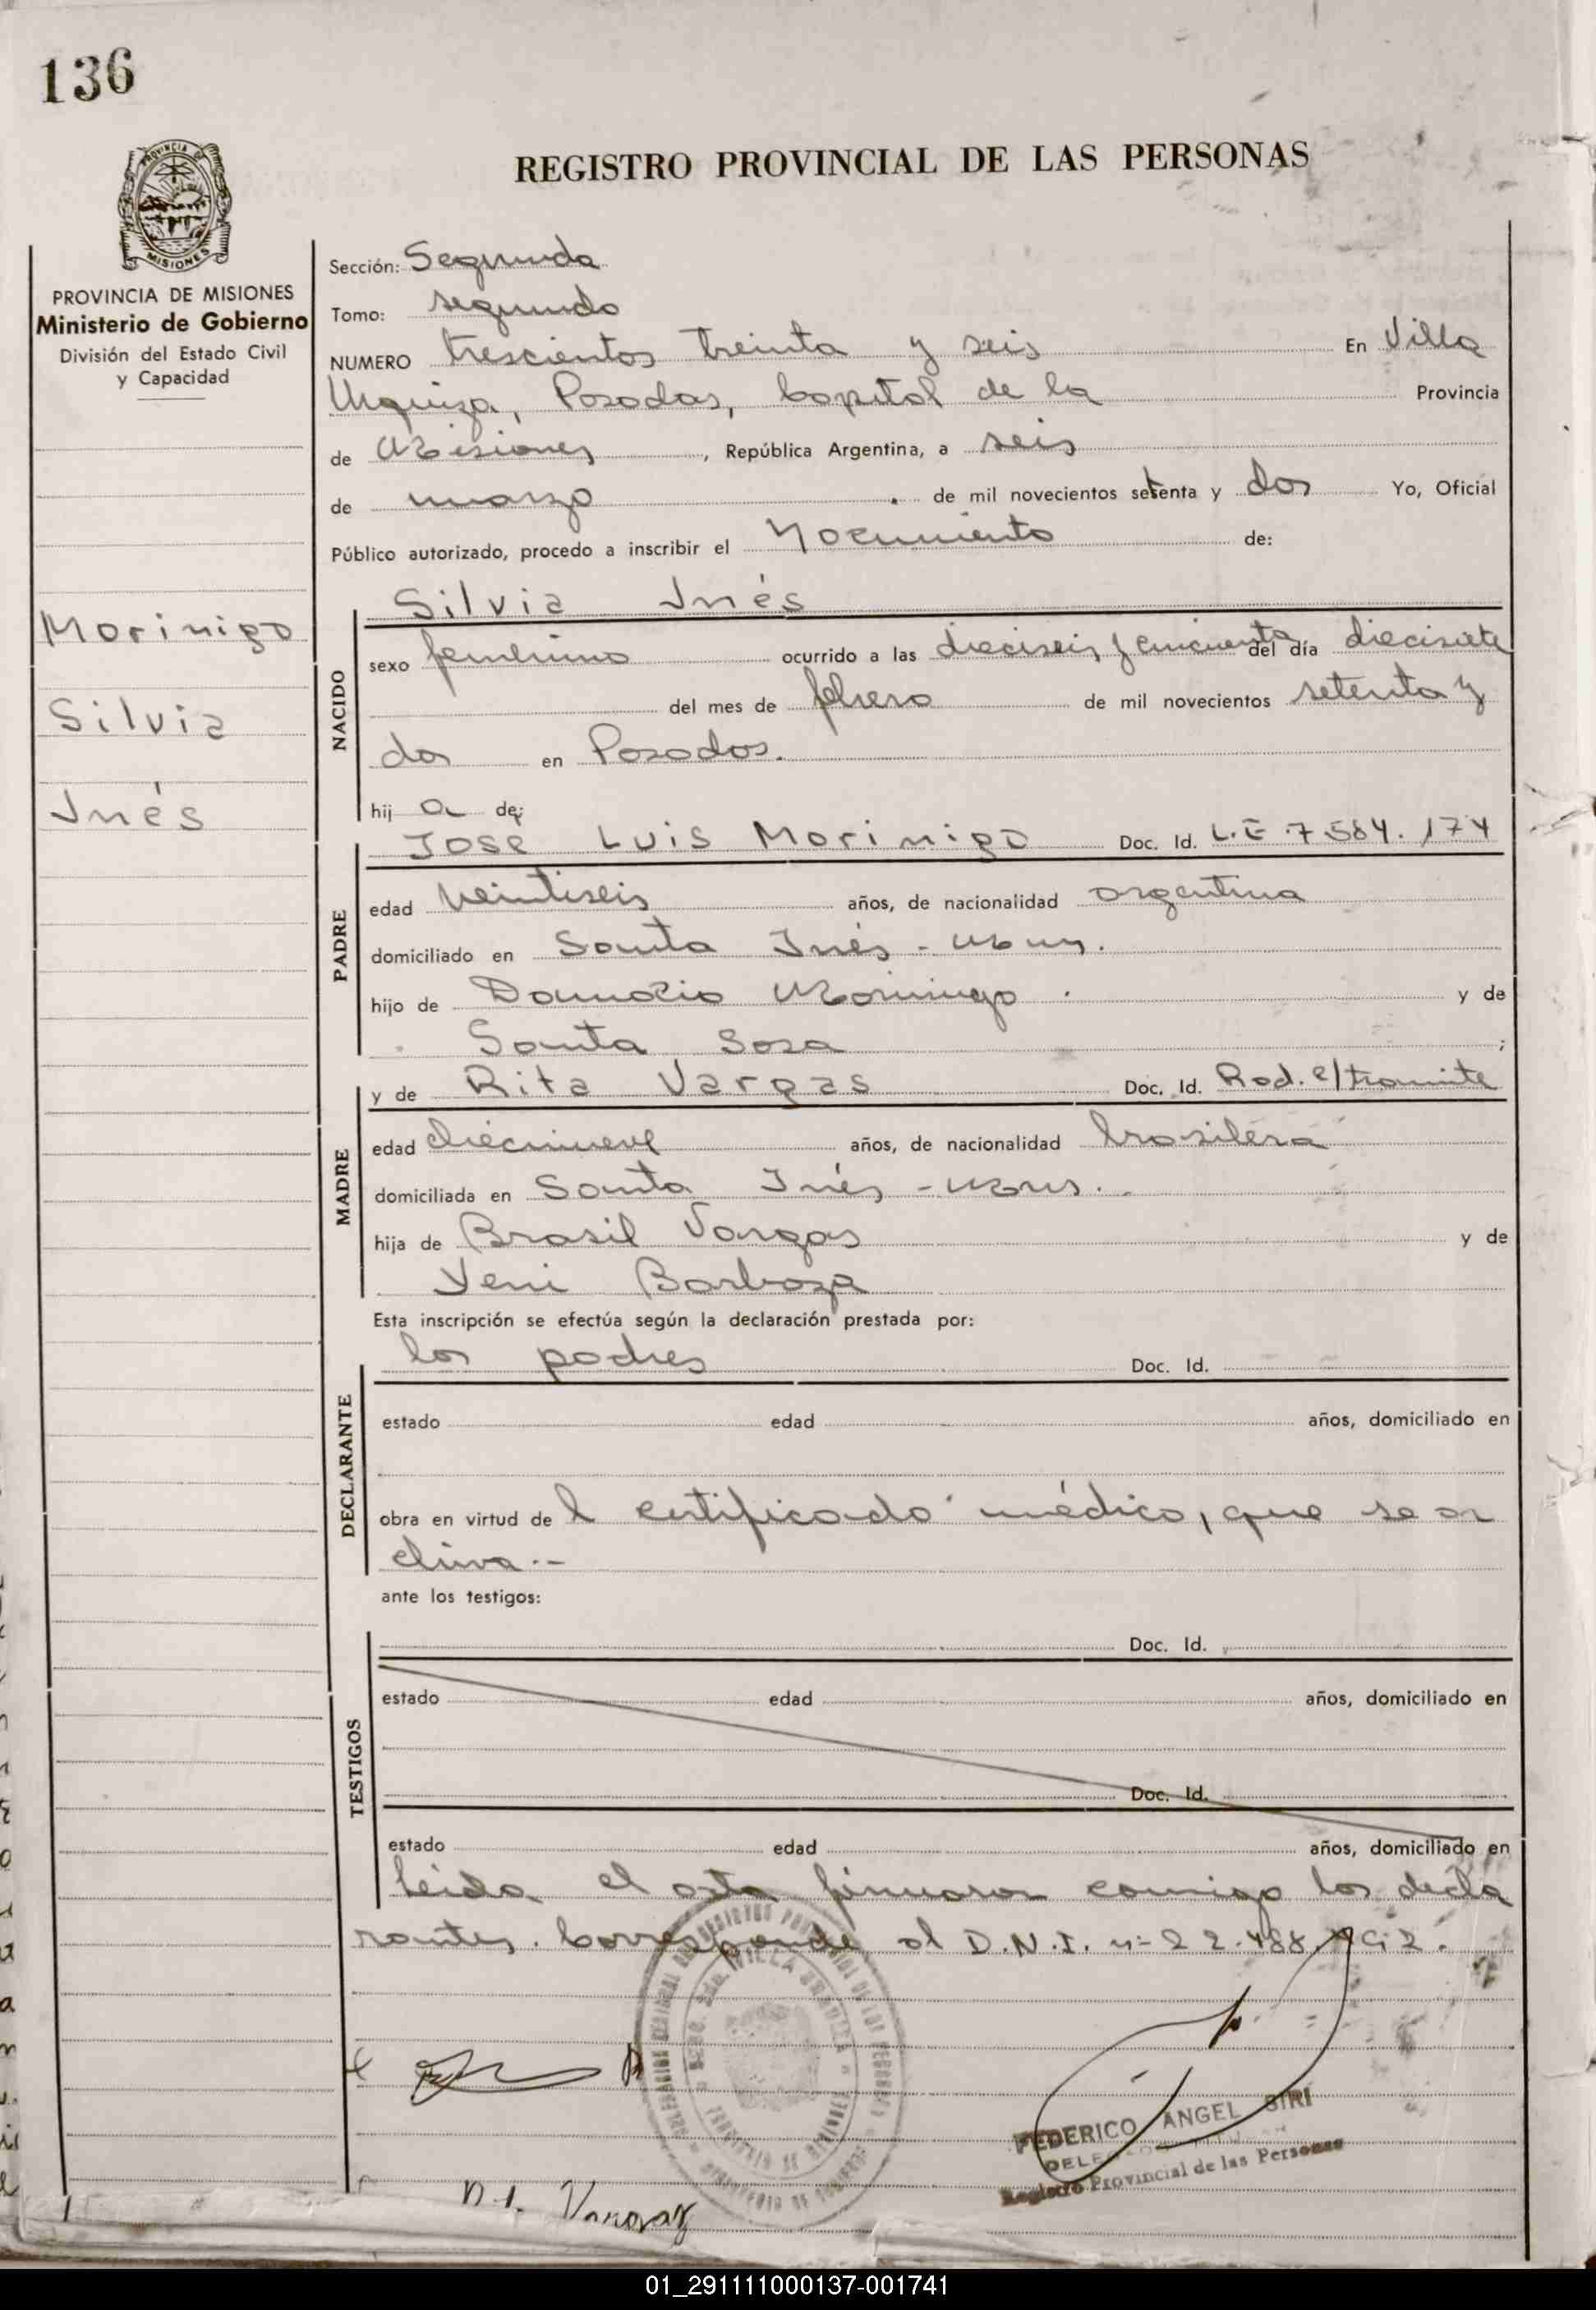 136
PROVINCIA DE
MISIONES
REGISTRO PROVINCIAL DE LAS PERSONAS
PROVINCIA DE MISIONES
Ministerio de Gobierno
División del Estado Civil
y Capacidad
Morinigo
Silvia
Inés
Sección: Segunda
Tomo: segundo
NUMERO trescientos treinta y seis En Villa
Urquiza, Posadas, Capital de la Provincia
de Misiones, República Argentina, a seis
de marzo de mil novecientos setenta y dos Yo, Oficial
Público autorizado, procedo a inscribir el Nacimiento de:
Silvia Inés
NACIDO
sexo femenino ocurrido a las dieciseis y cincuenta del día diecisiete
del mes de febrero de mil novecientos setenta y
dos en Posadas.
hija de:
Jose Luis Morinigo Doc. Id. L.E 7.584.174
PADRE
edad veintiseis años, de nacionalidad argentina
domiciliado en Santa Inés - Mnes.
hijo de Morinigo y de
Santa Sosa;
y de Rita Vargas Doc. Id. Rad. e/tramite
MADRE
edad diecinueve años, de nacionalidad brasilera
domiciliada en Santa Inés - Mnes.
hija de Brasil Vargas y de
Yeni Barboza
Esta inscripción se efectúa según la declaración prestada por:
los padres Doc. Id.
DECLARANTE
estado edad años, domiciliado en
obra en virtud del certificado médico, que se ar
chiva.-
ante los testigos:
Doc. Id.
TESTIGOS
estado edad años, domiciliado en
Doc. Id.
estado edad años, domiciliado en
leida el acta firmaron conmigo los decla
rantes. Corresponde al D.N.I. nº 22.488.
FEDERICO ANGEL SIRI
Registro Provincial de las Personas
Vargaz
01_291111000137-001741